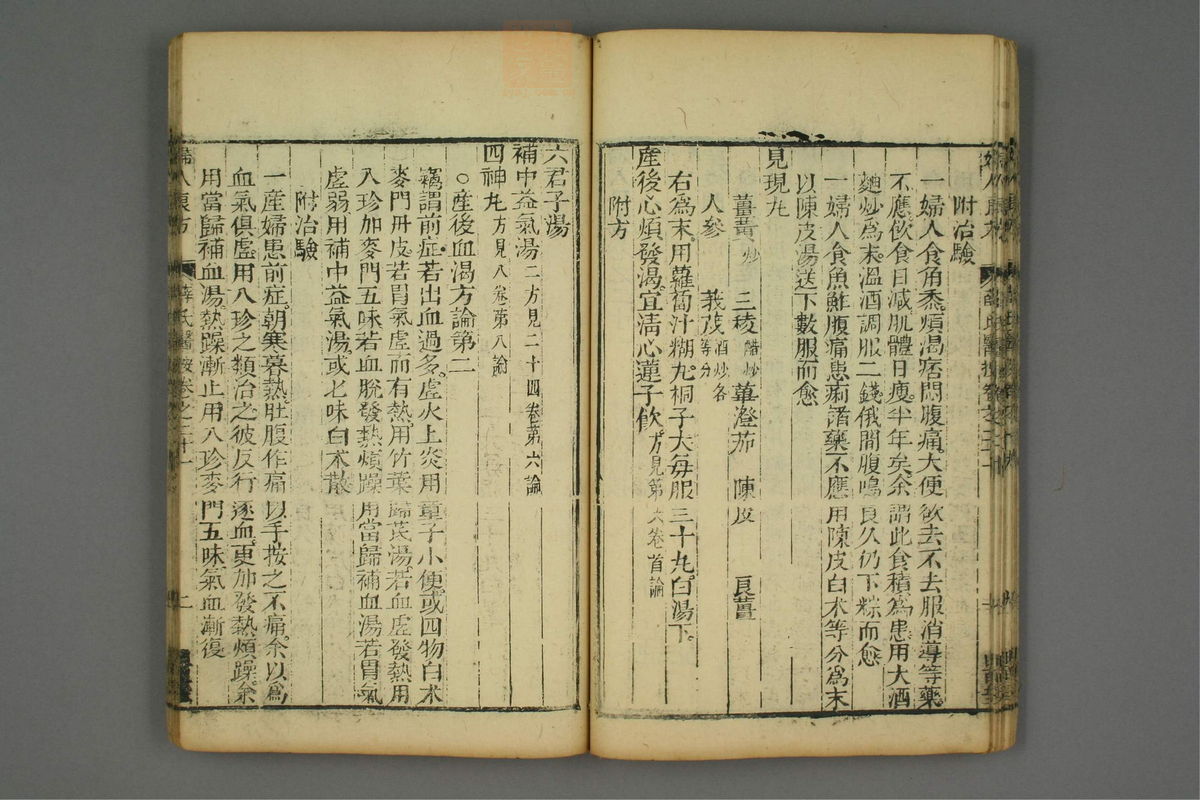 附治驗
一婦人食角黍煩渴痞悶腹痛大便欲去不去服消導等藥
不應飲食日減肌體日瘦半年矣余謂此食積爲患用大酒
麯炒爲末溫酒調服二錢俄間腹鳴良久仍下粽而愈
一婦人食魚鮓腹痛患痢諸藥不應用陳皮白术等分爲末
以陳皮湯送下數服而愈
見晛丸
薑黃炒 三稜醋炒 蓽澄茄 陳皮 良薑
人參 莪茂酒炒各等分
右爲末用蘿蔔汁糊丸桐子大每服三十丸白湯下
産後心煩發渴宜淸心蓮子飲方見第六卷首論
附方
六君子湯
補中益氣湯二方見二十四卷第六論
四神丸方見八卷第八論
○産後血渴方論第二
竊謂前症若出血過多虛火上炎用童子小便或四物白术
麥門丹皮若胃氣虛而有熱用竹葉歸芪湯若血虛發熱用
八珍加麥門五味若血脫發熱煩躁用當歸補血湯若胃氣
虛弱用補中益氣湯或七味白术散
附治驗
一産婦患前症朝寒暮熱肚腹作痛以手按之不痛余以爲
血氣俱虛用八珍之類治之彼反行逐血更加發熱煩躁余
用當歸補血湯熱躁漸止用八珍麥門五味氣血漸復
婦人良方 薛氏醫按卷之二十一 二